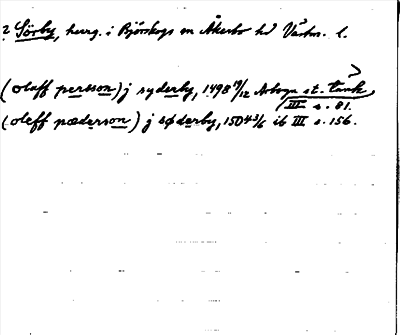 2 Sörby, herrg. i Bjórskogs sn Åkerbo hd Västm. l.
(Olaff persson) j syderby, 1498 19/12 Arboga st. tänk
III s. 81.
(oleff pæderson) j sØderby, 1504 3/6 ib III s. 156.